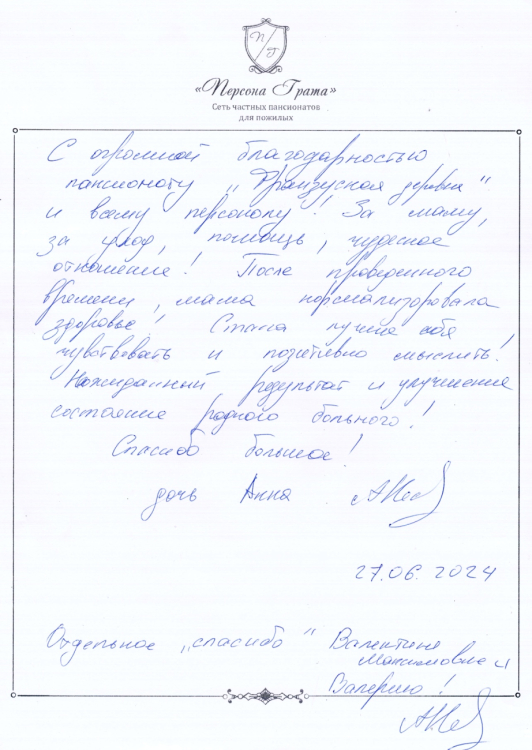 П/Г
«Персона Грата»
Сеть частных пансионатов
для пожилых
С огромной благодарностью
пансионату „Французская деревня"
и всему персоналу! За маму,
за уход, помощь, чудесное
отношение! После проведенного
времени, мама нормализовала
здоровье! Стала лучше себя
чувствовать и позитивно мыслить!
Неожиданный результат и улучшение
состояние родного больного!
Спасибо большое!
дочь Анна
27.06.2024
Отдельное „спасибо" Валентине
Максимовне и
Валерию!